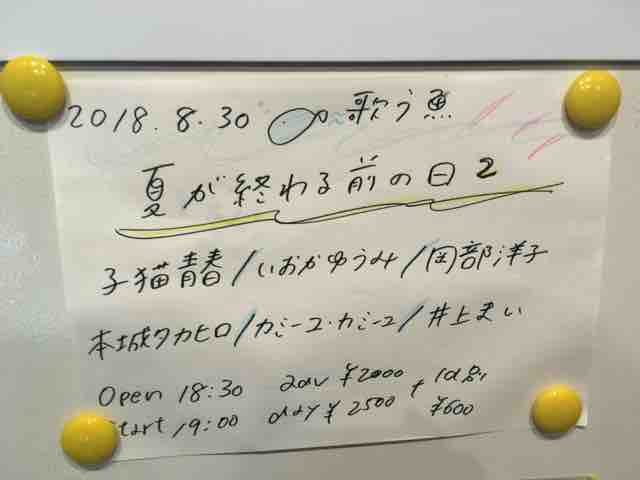 2018.8.30 歌う魚
夏が終わる前の日2
子猫青春/いおかゆうみ/岡部洋子
本城タカヒロ/カミーユ・カミーユ/井上まい
Open 18:30 adv ¥2000 + 1d別
Start 19:00 day ¥2500 ¥600